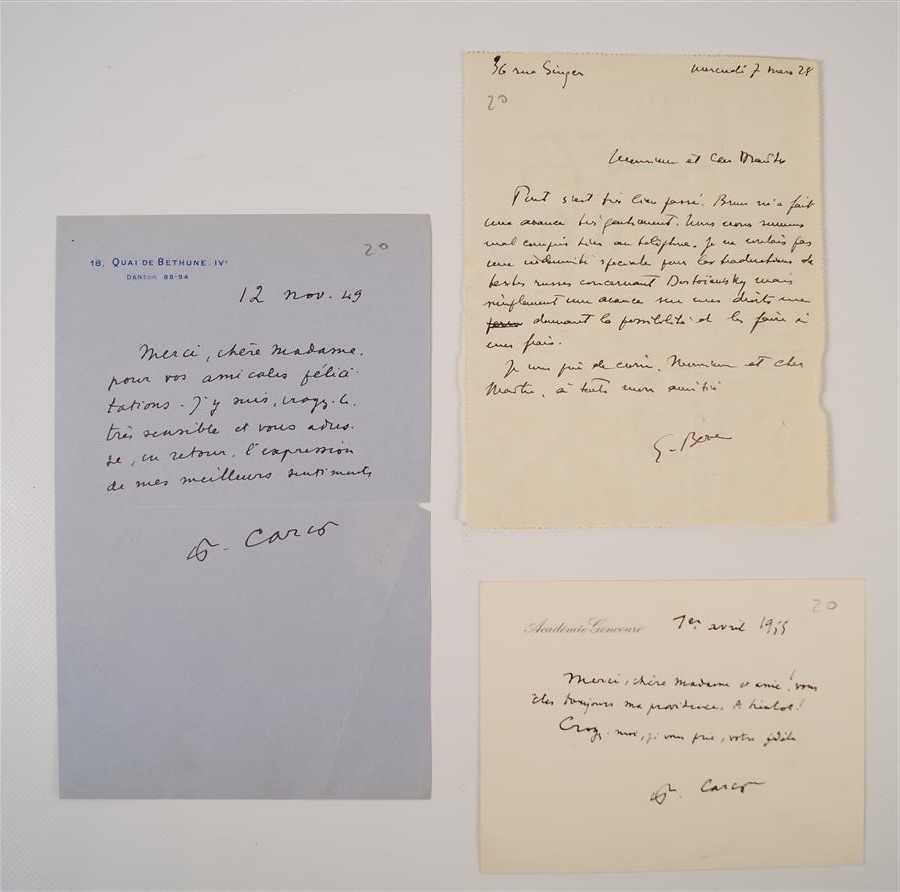 18, QUAI DE BÉTHUNE. IVe
DANTON 88-94
20
12 nov. 49
Merci, chère Madame,
pour vos amicales félici-
tations. J'y suis, croyez-le,
très sensible et vous adres-
se, en retour, l'expression
de mes meilleurs sentiments
F. Carco
36 rue Singer
mercredi 7 mars 28
20
Monsieur et cher Maître
Tout s'est très bien passé. Brun m'a fait
une avance très gentiment. Nous nous sommes
mal compris hier au téléphone. Je ne voulais pas
une indemnité spéciale pour les traductions de
textes russes concernant Dostoïewsky mais
simplement une avance sur mes droits me
donnant la possibilité de les faire à
mes frais.
Je vous prie de croire, Monsieur et cher
Maître, à toute mon amitié
20
Académie Goncourt
1er avril 1955
Merci, chère Madame et amie! vous
êtes toujours ma providence. A bientôt!
Croyez-moi, je vous prie, votre fidèle
F. Carco